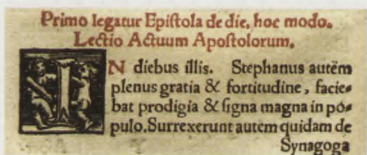 Primo legatur Epiſtola de die, hoc modo.
Lectio Actuum Apoſtolorum.
IN diebus illis. Stephanus autem
plenus gratia & fortitudine, facie-
bat prodigia & ſigna magna in po-
pulo. Surrexerunt autem quidam de
Synagoga